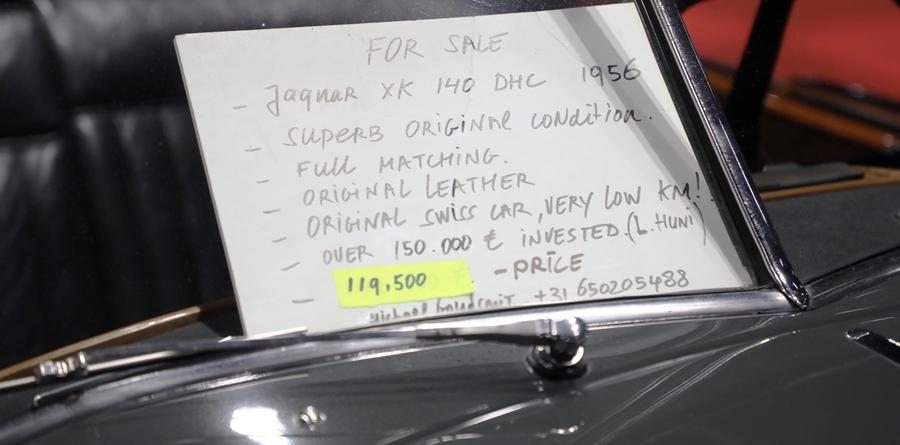 FOR SALE
- Jaguar XK 140 DHC 1956
- SUPERB ORIGINAL CONDITION.
- FULL MATCHING.
- ORIGINAL LEATHER
- ORIGINAL SWISS CAR, VERY LOW KM!
- OVER 150.000 € INVESTED. (L. HUNI)
- 119,500 - PRICE
Michael +31 650205488